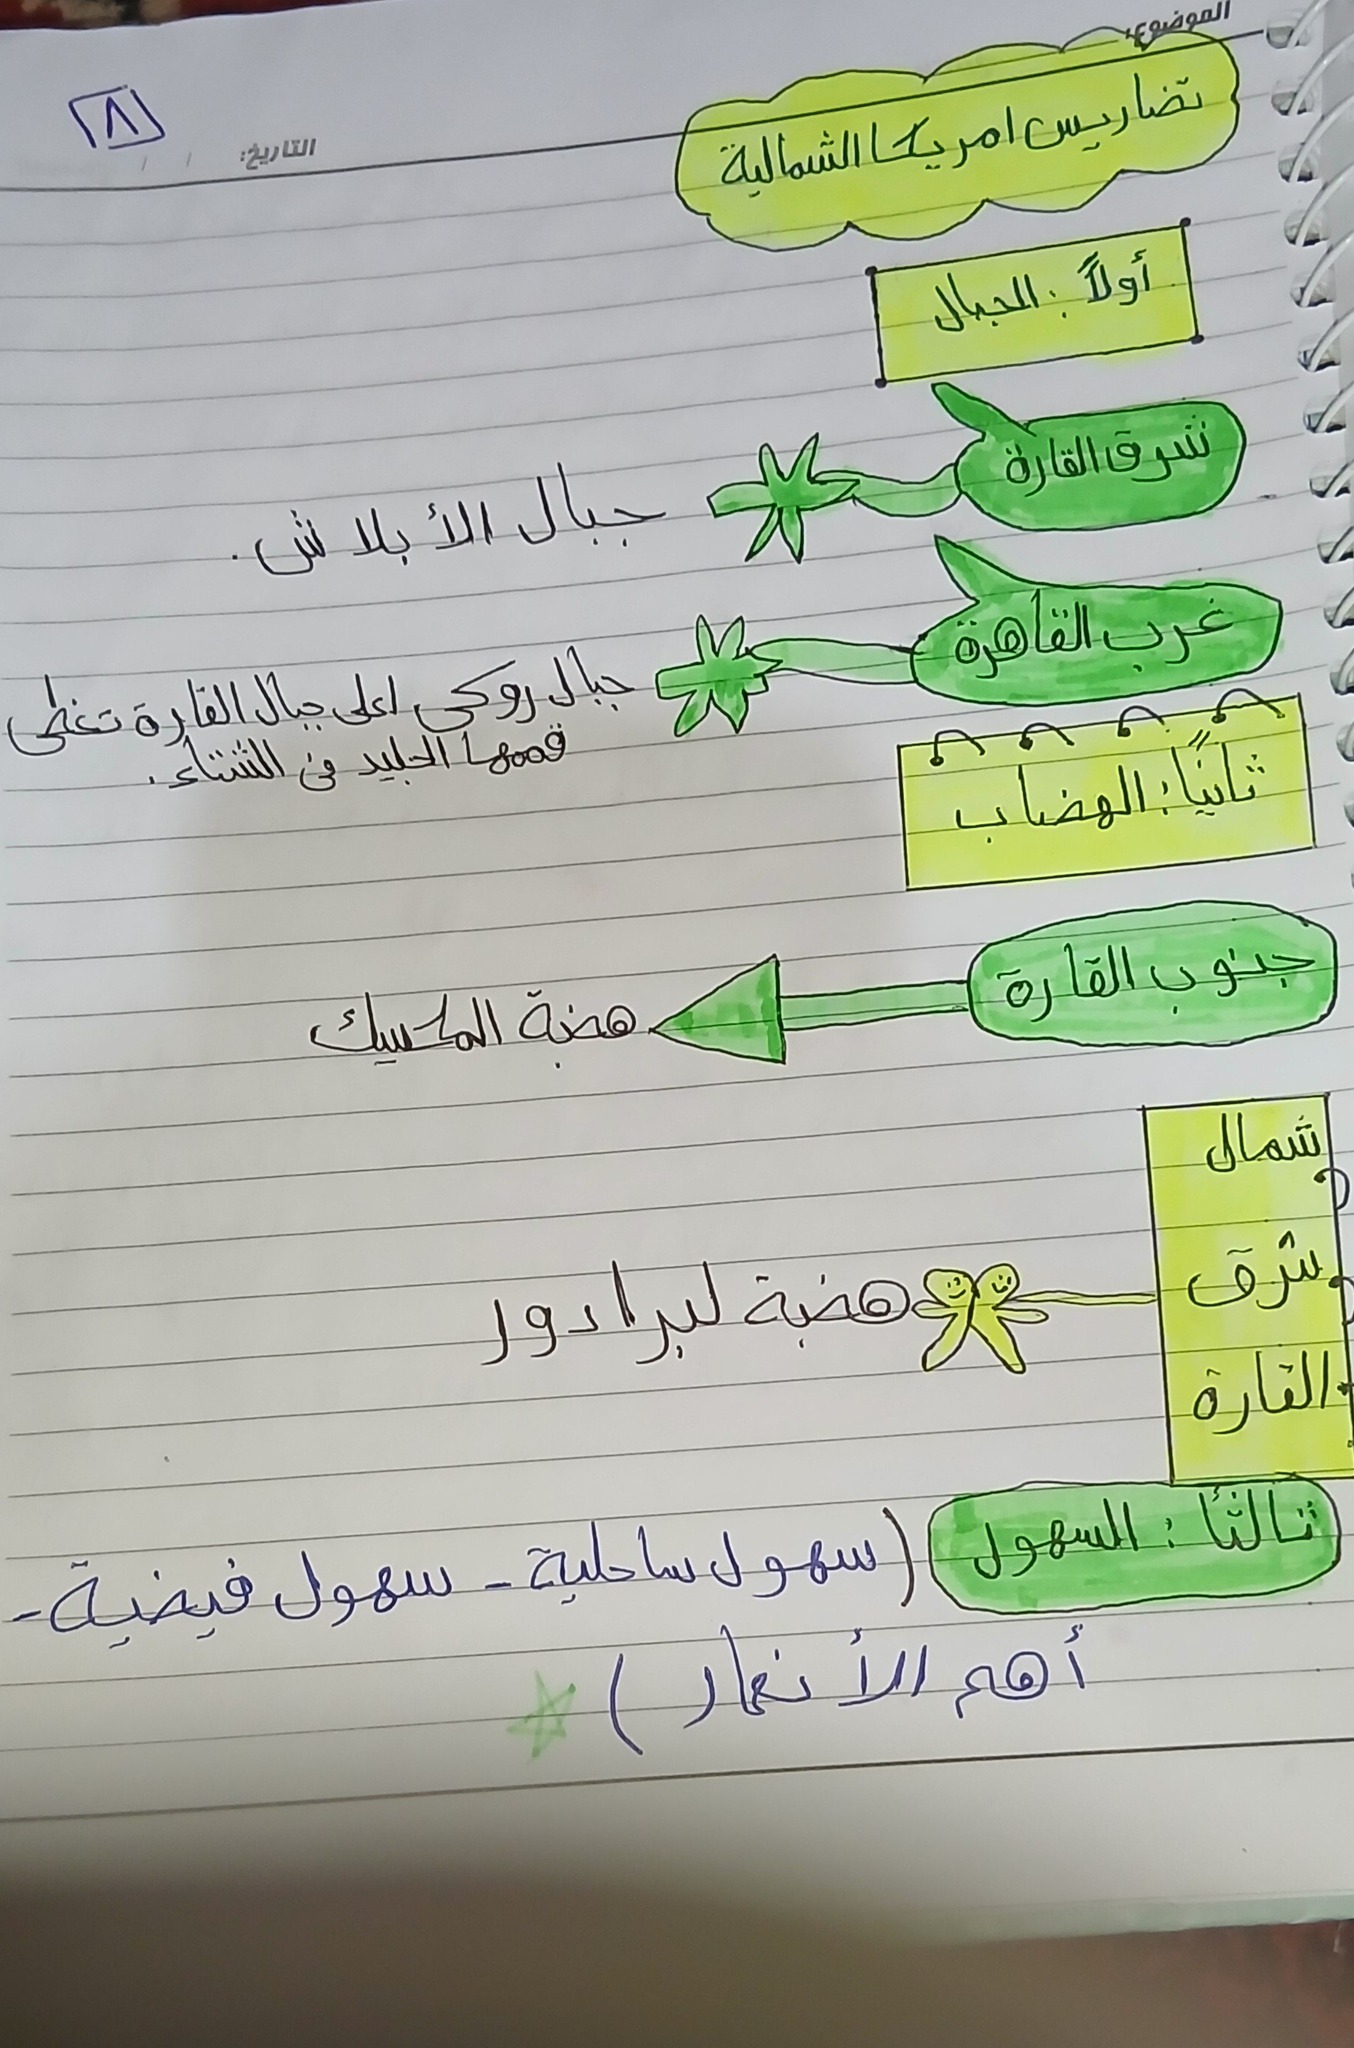 الموضوع:
التاريخ: / /
٨
تضاريس امريكا الشمالية
أولاً: الجبال
شرق القارة
جبال الأبلاش.
غرب القاهرة
جبال روكي اعلى جبال القارة تغطى
قممها الجليد فى الشتاء.
ثانيًا: الهضاب
جنوب القارة
هضبة المكسيك
شمال
شرق
القارة
هضبة لبرادور
ثالثًا: السهول (سهول ساحلية - سهول فيضية -
أهم الأنهار)